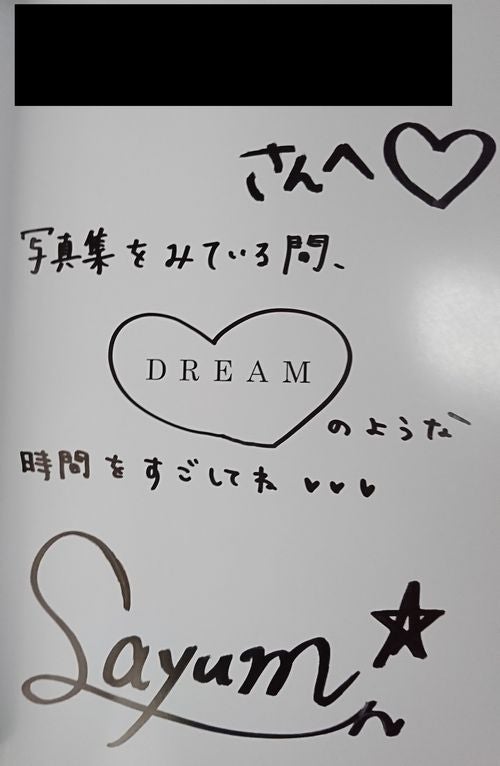 さんへ♡
写真集をみている間、
DREAM
のような
時間をすごしてね ♥♥♥
Sayumin☆